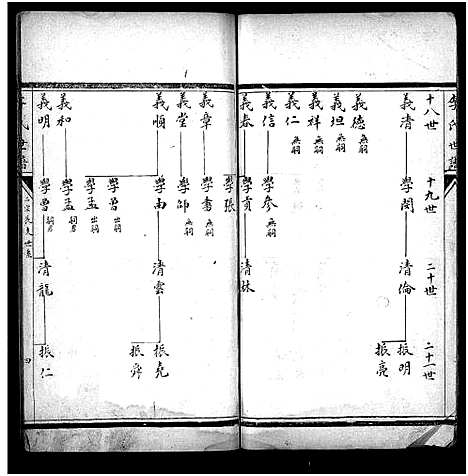 李氏世譜
十八世
十九世
二十世
二十一世
義清
學閔
清倫
振明
振亮
義德
無嗣
義坦
無嗣
義祥
無嗣
義仁
無嗣
義信
學參
無嗣
義春
學貢
清林
學張
義章
學書
無嗣
義堂
學邵
無嗣
義順
學由
清雲
振堯
振舜
學曾
出嗣
學孟
出嗣
義和
學孟
嗣男
義明
學曾
嗣男
清龍
振仁
氏世譜
四